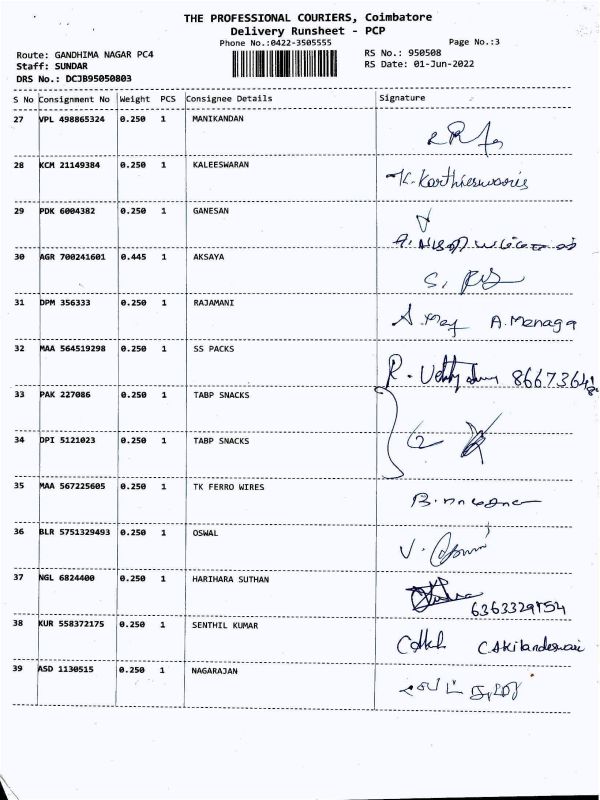 THE PROFESSIONAL COURIERS, Coimbatore
Delivery Runsheet - PCP
Phone No.:0422-3505555 Page No.:3
Route: GANDHIMA NAGAR PC4 RS No.: 950508
Staff: SUNDAR RS Date: 01-Jun-2022
DRS No.: DCJB95050803
S No Consignment No Weight PCS Consignee Details Signature
27 VPL 498865324 0.250 1 MANIKANDAN
28 KCM 21149384 0.250 1 KALEESWARAN K.Karthieswaris
29 PDK 6004382 0.250 1 GANESAN
30 AGR 700241601 0.445 1 AKSAYA
31 DPM 356333 0.250 1 RAJAMANI A.Menaga
32 MAA 564519298 0.250 1 SS PACKS
33 PAK 227086 0.250 1 TABP SNACKS
34 DPI 5121023 0.250 1 TABP SNACKS
35 MAA 567225605 0.250 1 TK FERRO WIRES
36 BLR 5751329493 0.250 1 OSWAL
37 NGL 6824400 0.250 1 HARIHARA SUTHAN
38 KUR 558372175 0.250 1 SENTHIL KUMAR C.Akilandeswari
39 ASD 1130515 0.250 1 NAGARAJAN